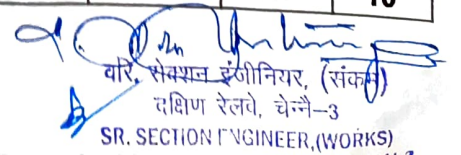 10
वरि. सेक्शन इंजीनियर, (संकर्म)
दक्षिण रेलवे, चेन्नै-3
SR. SECTION ENGINEER,(WORKS)